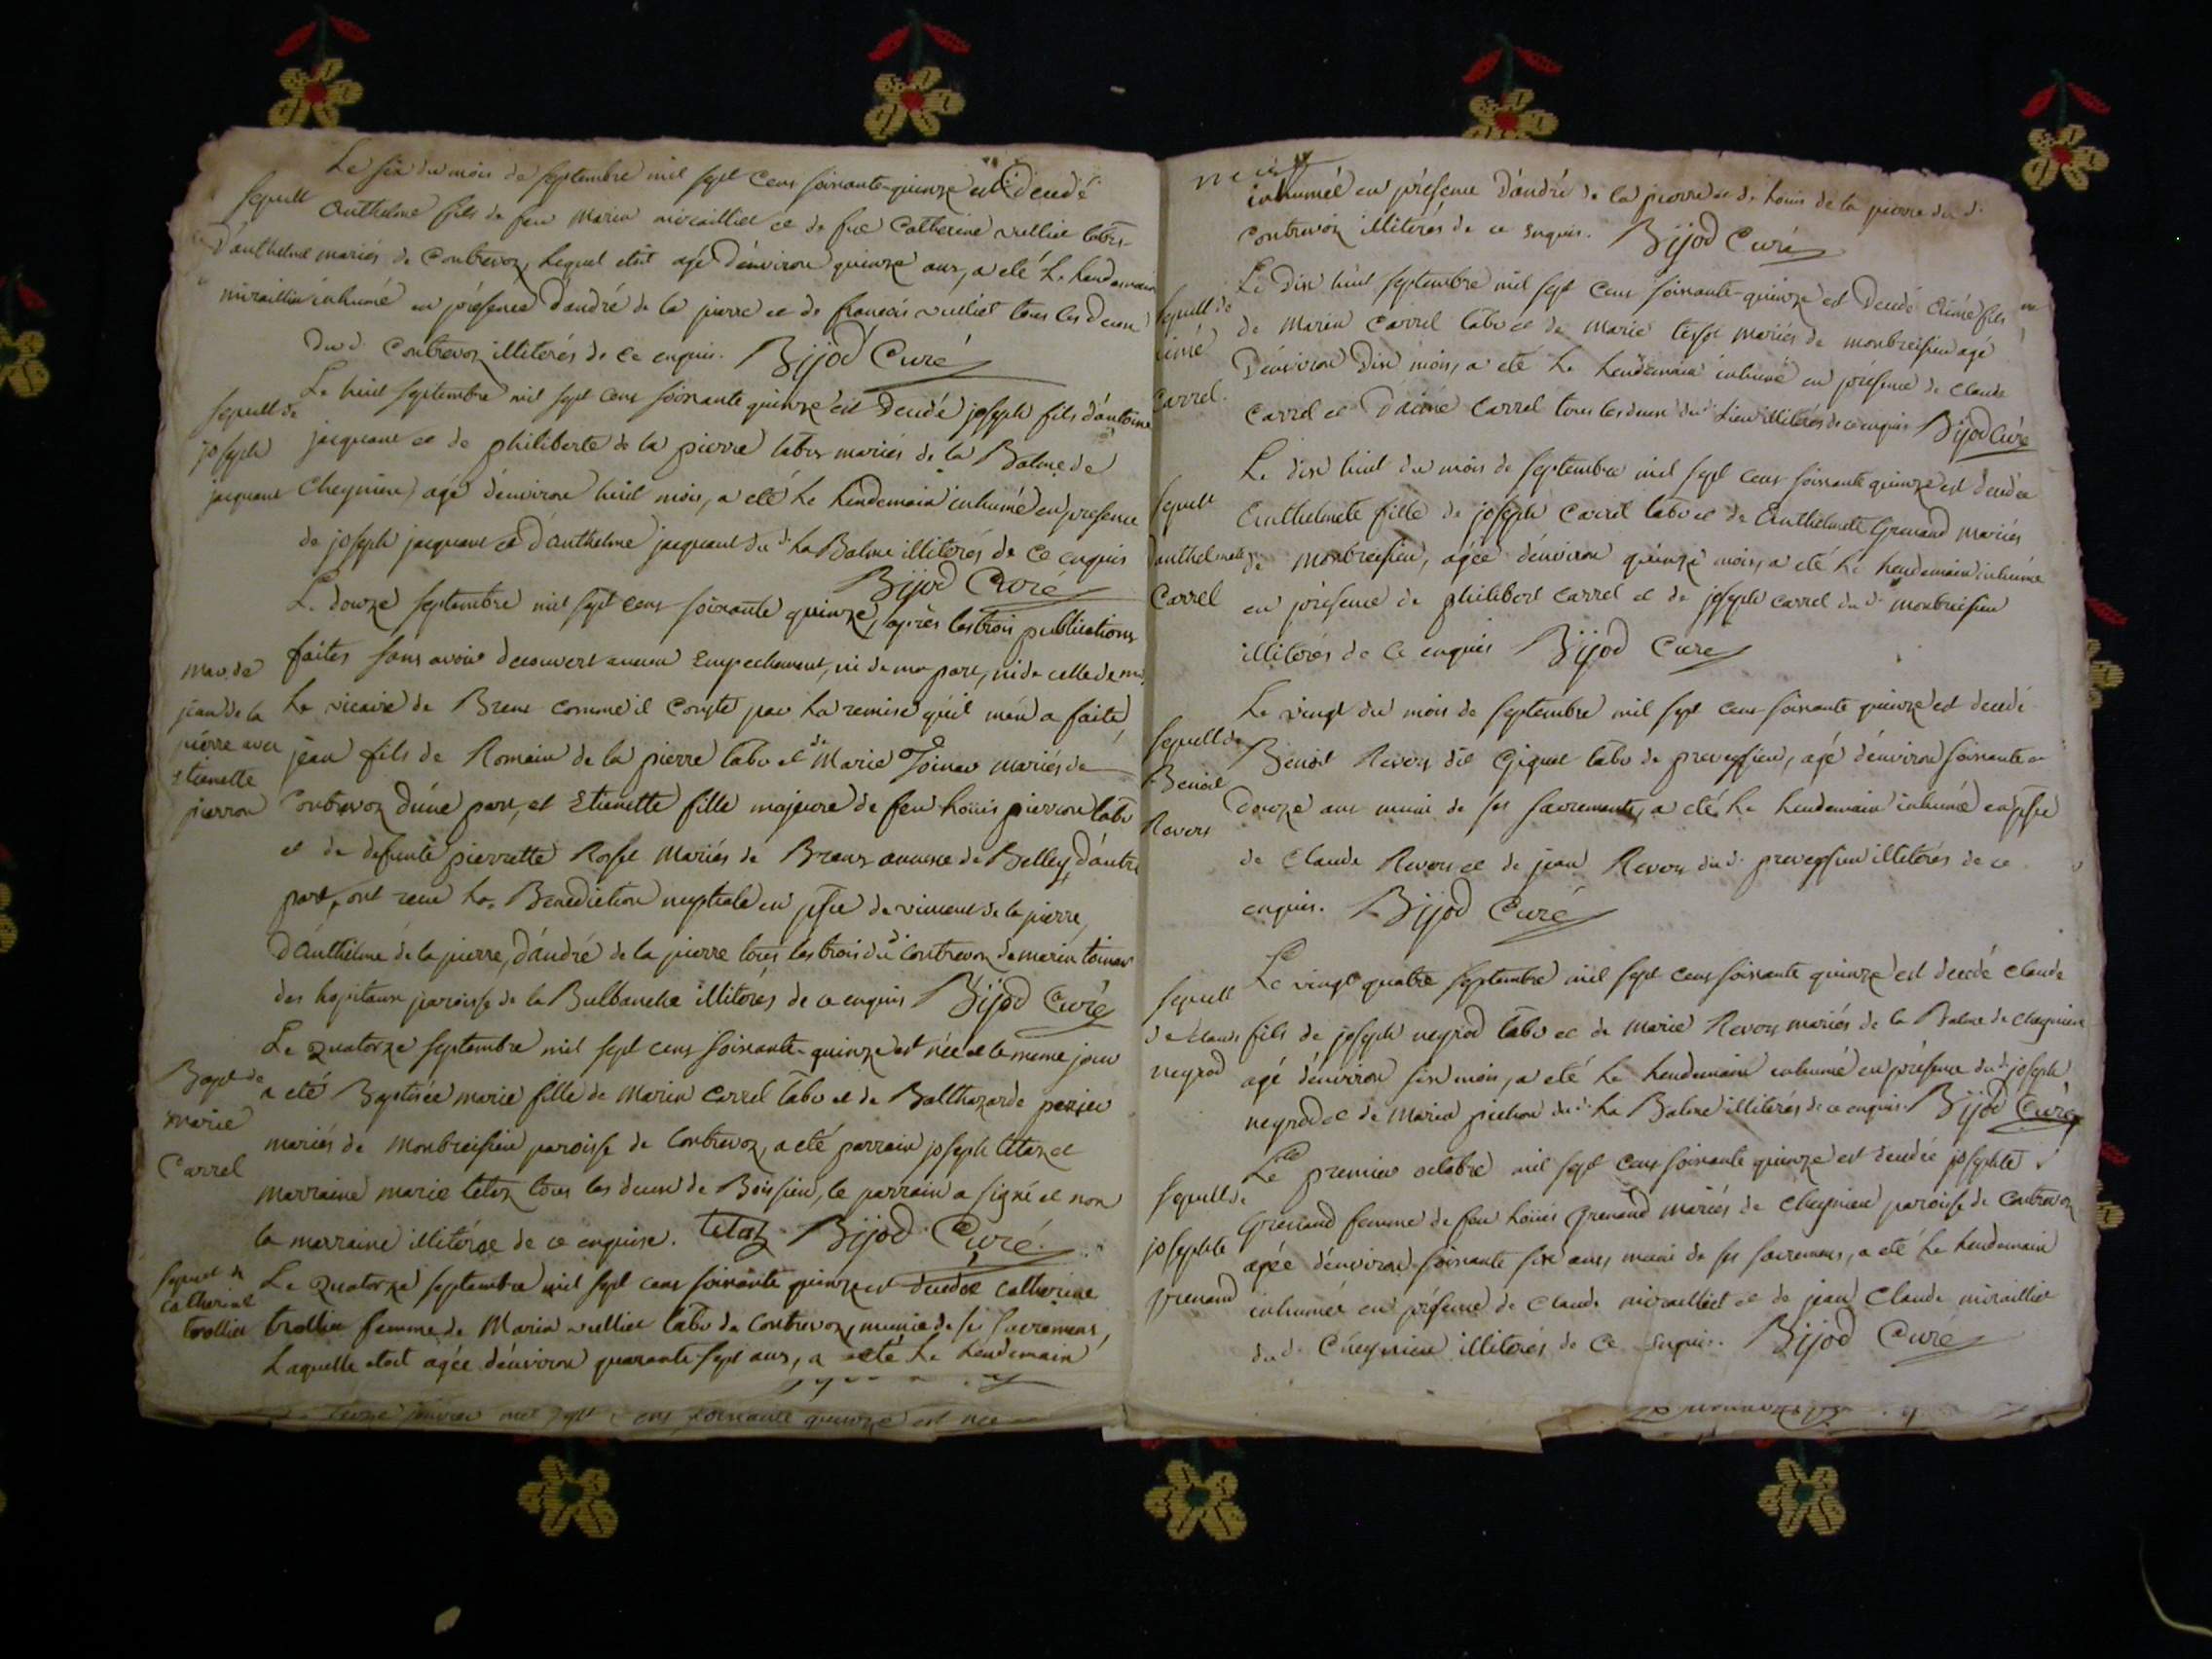 Le six du mois de septembre mil sept cens soixante-quinze est decedé
sepult
Anthelme fils de feu Marin miraillier et de feue Catherine vulliet labrs
d'anthelme mariés de Contrevoz, lequel etoit agé d'environ quinze ans, a eté le lendemain
miraillier inhumé en présence d'andré de la pierre et de francois vulliet tous les deux
dud. Contrevoz illiterés de ce enquis. Bijod Curé
Le huit septembre mil sept cens soixante quinze est decedé joseph fils d'antoine
sepult de
joseph
jacquant
jacquant et de philiberte de la pierre labrs mariés de la Balme de
Cheignieu, agé d'environ huit mois, a eté le lendemain inhumé en presence
de joseph jacquant et d'anthelme jacquant dud. La Balme illiterés de ce enquis
Bijod Curé
Le douze septembre mil sept cens soixante quinze, après les trois publications
mar. de
jean de la
pierre avec
Etienette
pierron
faites sans avoir decouvert aucun Empechement, ni de ma part, ni de celle de mr.
Le vicaire de Brens comme il conste par la remise qu'il m'en a faite,
jean fils de Romain de la pierre labr et de Marie Joinar mariés de
Contrevoz d'une part, et Etienette fille majeure de feu Loüis pierron labr
et de defunte pierrette Rosset Mariés de Brens annexe de Belley, d'autre
part, ont recu la Benediction nuptiale en psce de vincent de la pierre,
d'Anthelme de la pierre, d'andré de la pierre tous les trois dud. Contrevoz de marin toinar
des hopitaux paroisse de la Burbanche illiterés de ce enquis Bijod Curé
Le quatorze septembre mil sept cens soixante-quinze est née et le meme jour
Bapt de
marie
Carrel
a eté Baptisée marie fille de Marin Carrel labr et de Balthazarde perier
mariés de Montbreisieu paroisse de Contrevoz, a eté parrain joseph tetaz et
marraine marie tetaz tous les deux de Boissieu, le parrain a signé et non
la marraine illiterée de ce enquise. tetaz Bijod Curé
sepult de
catherine
trollier
Le quatorze septembre mil sept cens soixante quinze est decedée catherine
trollier femme de Marin vulliet labr de Contrevoz, munie de ses sacremens,
Laquelle etoit agée d'environ quarante sept ans, a eté le lendemain
janvier mil sept cens soixante quinze est née
inhumée en présence d'andré de la pierre et de Louis de la pierre dud.
Contrevoz illiterés de ce enquis. Bijod Curé
Le dix huit septembre mil sept cens soixante-quinze est decedé Aimé fils
sepult de
aimé
Carrel.
de Marin Carrel labr et de Marie tissot mariés de montbreisieu agé
d'environ dix mois, a eté le lendemain inhumé en présence de Claude
Carrel et d'aimé Carrel tous les deux dud. Lieu illiterés de ce enquis Bijod Curé
Le dix huit du mois de septembre mil sept cens soixante quinze est decedée
sepult
d'anthelmete
Carrel
Anthelmete fille de joseph Carrel labr et de Anthelmete Grenand mariés
de montbreisieu, agée d'environ quinze mois, a eté le lendemain inhumée
en présence de philibert carrel et de joseph carrel dud. montbreisieu
illiterés de ce enquis Bijod Curé
Le vingt du mois de septembre mil sept cens soixante quinze est decedé
sepult de
Benoit
Revoy
Benoit Revoy dit Giguet labr de preveyssieu, agé d'environ soixante et
douze ans muni de ses sacrements, a eté le lendemain inhumé en psce
de Claude Revoy et de jean Revoy dud. preveyssieu illiterés de ce
enquis. Bijod Curé
Le vingt quatre septembre mil sept cens soixante quinze est decedé Claude
sepult
de Claude
neyrod
fils de joseph neyrod labr et de Marie Revoy mariés de la Balme de Cheignieu
agé d'environ six mois, a eté le lendemain inhumé en présence dud. joseph
neyrod et de Marin pichon dud. La Balme illiterés de ce enquis. Bijod Curé
Le premier octobre mil sept cens soixante quinze est decedée josephte
sepult de
josephte
Grenand
Grenand femme de feu Loüis Grenand mariés de Cheignieu paroisse de Contrevoz
agée d'environ soixante six ans, munie de ses sacremens, a eté le lendemain
inhumée en présence de Claude miraillier et de jean Claude miraillier
dud. Cheignieu illiterés de ce enquis. Bijod Curé